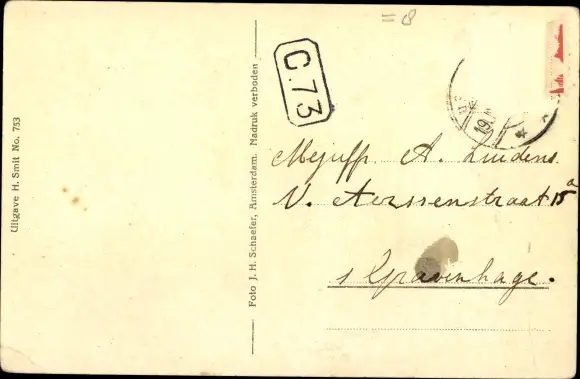 Uitgave H. Smit No. 753
Foto J. H. Schaefer, Amsterdam. Nadruk verboden
C.73
Mejuffr. A.
V. Aerssenstraat 15a
s Gravenhage.